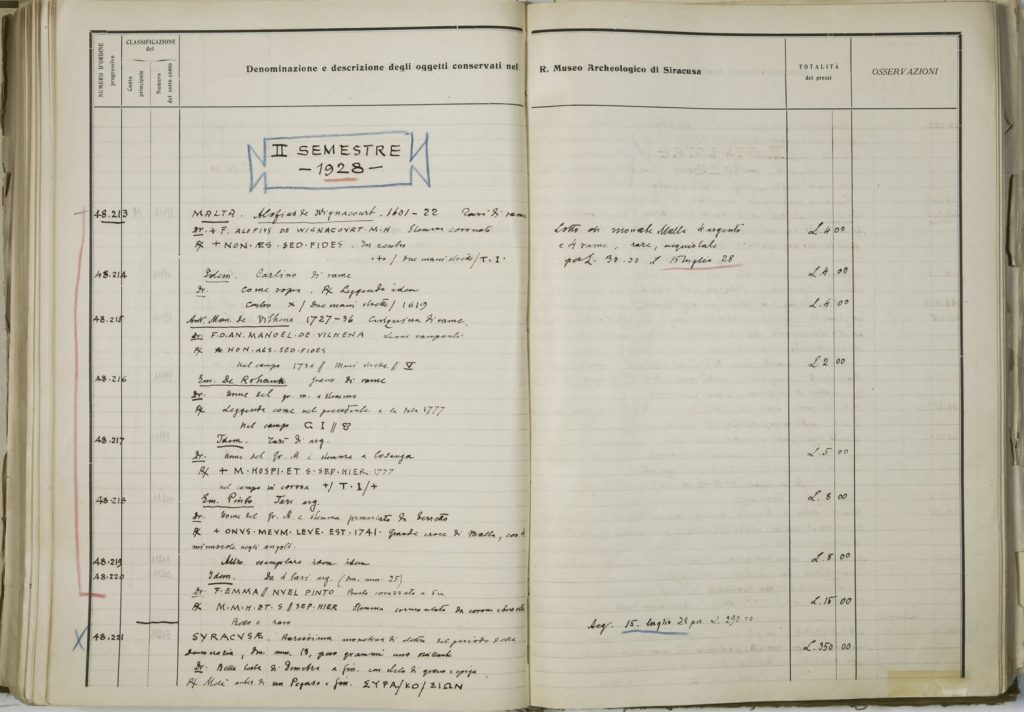 NUMERO D'ORDINE progressivo
CLASSIFICAZIONE del
Conto principale
Numero del sotto conto
Denominazione e descrizione degli oggetti conservati nel R. Museo Archeologico di Siracusa
TOTALITÀ dei prezzi
OSSERVAZIONI
II SEMESTRE
- 1928 -
48.213 MALTA. Alofius de Wignacourt. 1601-22 Tarì di rame
Dr. + F. ALOFIUS DE WIGNACOURT. M. H Stemma coronato
R/ + NON. ÆS. SED. FIDES. In centro
/ Due mani strette / T. I.
Lotto di monete Malta 4 argento
e 4 rame, rare, acquistate
per L. 30.00 il 15 luglio 28
L. 4 00
48.214 Idem. Carlino di rame
L. 4 00
Dr. come sopra. R/ Leggenda idem
Centro / Due mani strette / 1619
L. 4 00
48.215 Ant. Man. de Vilhena 1727-36 Cinquina di rame
Dr. F.D. AN. MANOEL. DE VILHENA Leone rampante
R/ NON. AES. SED. FIDES
nel campo // Mani strette // V
L. 2 00
48.216 Em. De Rohan grano di rame
Dr. Nome del gr. m. e stemma
R/ Leggenda come nel precedente e la data 1777
nel campo G I //
48.217 Idem. Tarì di arg.
Dr. Nome del Gr. M. e stemma a losanga
L. 5 00
R/ + M. HOSPI. ET S. SEP. HIER 1777
nel campo in corona + / T. I / +
48.218 Em. Pinto Tarì arg.
L. 8 00
Dr. Nome del Gr. M. e stemma
R/ + ONVS. MEVM. LEVE. EST. 1741. Grande croce di Malta, con
minuscole negli angoli.
48.219 Altro esemplare idem idem
L. 8 00
48.220 Idem. Da 4 Tarì arg. (dm. mm. 25)
Dr. F. EMMA // NVEL PINTO Busto corazzato a Sin.
R/ M. M. H. ET. S // SEP. HIER Stemma sormontato da corona
L. 15 00
Bello e raro
Acq. 15. luglio 28 per L. 290.00
48.221 SYRACVSÆ Rarissima monetina di elettro del periodo della
democrazia, dm. mm. 13, peso grammi uno
L. 350 00
Dr. Bella testa di Demetra a sin. con stelo di grano e spiga
R/ Metà anter. di un Pegaso a sin. ΣΥΡΑ/ΚΟ/ΣΙΩΝ